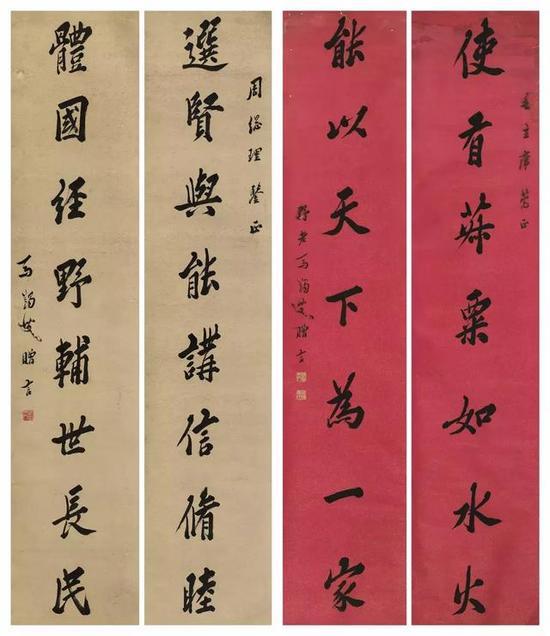 使有菽粟如水火
毛主席 正
能以天下為一家
野老馬 贈言
選賢與能講信脩睦
周總理鑒正
體國經野輔世長民
馬 贈言